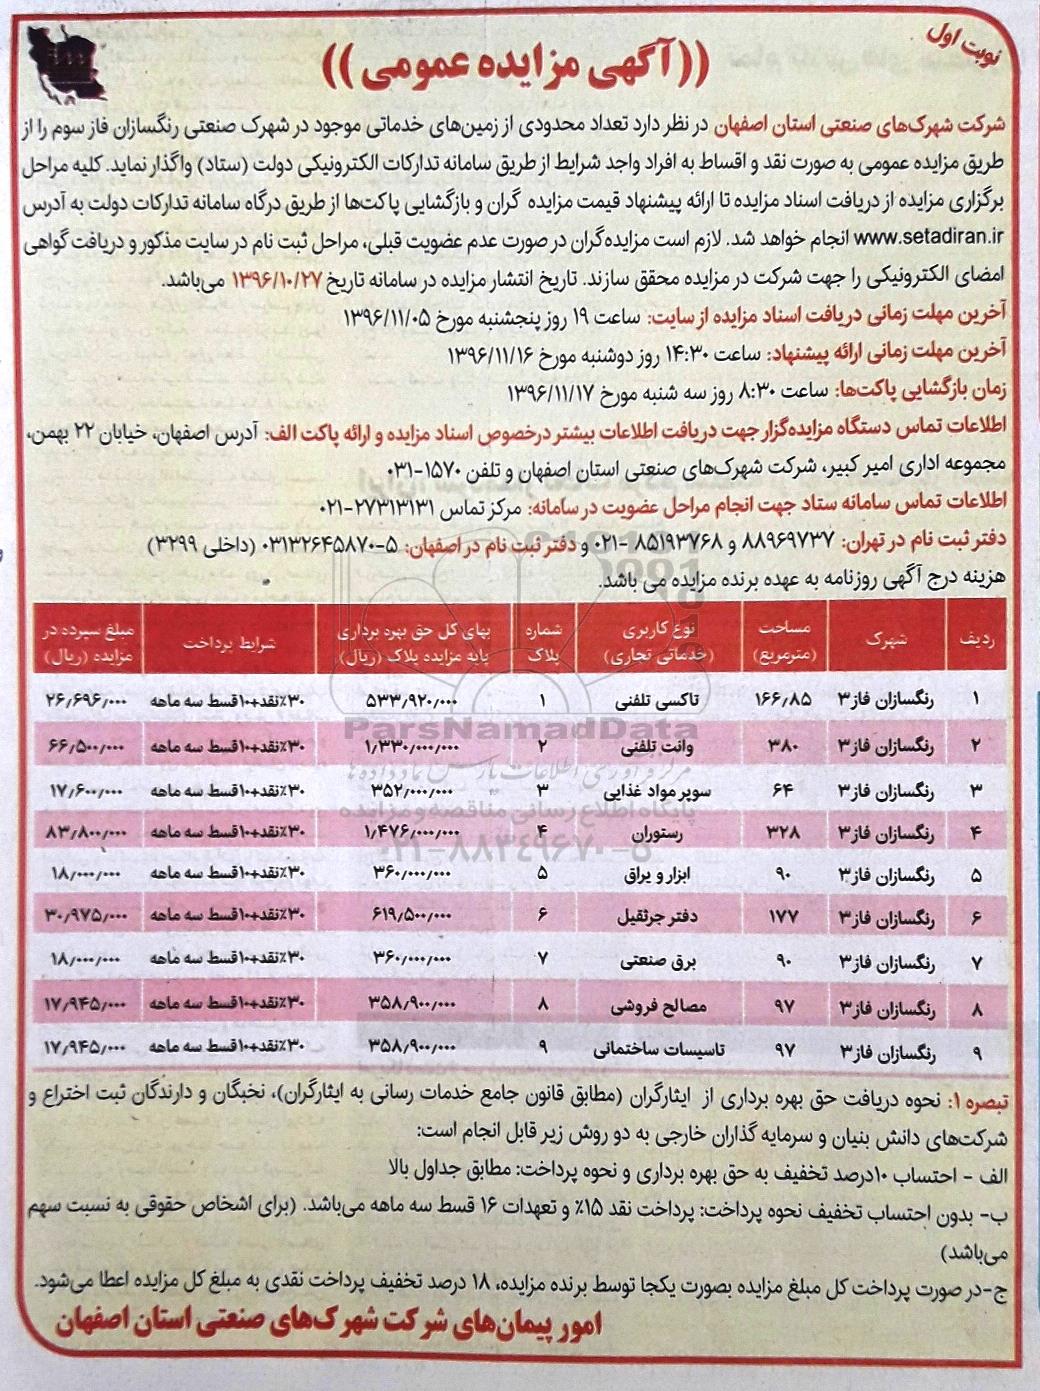 نوبت اول
((آگهی مزایده عمومی))
شرکت شهرک‌های صنعتی استان اصفهان در نظر دارد تعداد محدودی از زمین‌های خدماتی موجود در شهرک صنعتی رنگسازان فاز سوم را از
طریق مزایده عمومی به صورت نقد و اقساط به افراد واجد شرایط از طریق سامانه تدارکات الکترونیکی دولت (ستاد) واگذار نماید. کلیه مراحل
برگزاری مزایده از دریافت اسناد مزایده تا ارائه پیشنهاد قیمت مزایده گران و بازگشایی پاکت‌ها از طریق درگاه سامانه تدارکات دولت به آدرس
www.setadiran.ir انجام خواهد شد. لازم است مزایده‌گران در صورت عدم عضویت قبلی، مراحل ثبت نام در سایت مذکور و دریافت گواهی
امضای الکترونیکی را جهت شرکت در مزایده محقق سازند. تاریخ انتشار مزایده در سامانه تاریخ ۱۳۹۶/۱۰/۲۷ می‌باشد.
آخرین مهلت زمانی دریافت اسناد مزایده از سایت: ساعت ۱۹ روز پنجشنبه مورخ ۱۳۹۶/۱۱/۰۵
آخرین مهلت زمانی ارائه پیشنهاد: ساعت ۱۴:۳۰ روز دوشنبه مورخ ۱۳۹۶/۱۱/۱۶
زمان بازگشایی پاکت‌ها: ساعت ۸:۳۰ روز سه شنبه مورخ ۱۳۹۶/۱۱/۱۷
اطلاعات تماس دستگاه مزایده‌گزار جهت دریافت اطلاعات بیشتر درخصوص اسناد مزایده و ارائه پاکت الف: آدرس اصفهان، خیابان ۲۲ بهمن،
مجموعه اداری امیر کبیر، شرکت شهرک‌های صنعتی استان اصفهان و تلفن ۱۵۷۰-۰۳۱
اطلاعات تماس سامانه ستاد جهت انجام مراحل عضویت در سامانه: مرکز تماس ۲۷۳۱۳۱۳۱-۰۲۱
دفتر ثبت نام در تهران: ۸۸۹۶۹۷۳۷ و ۸۵۱۹۳۷۶۸ -۰۲۱ و دفتر ثبت نام در اصفهان: ۵-۰۳۱۳۲۶۴۵۸۷۰ (داخلی ۳۲۹۹)
هزینه درج آگهی روزنامه به عهده برنده مزایده می باشد.
ردیف شهرک مساحت (مترمربع) نوع کاربری (خدماتی تجاری) شماره پلاک بهای کل حق بهره برداری پایه مزایده پلاک (ریال) شرایط پرداخت مبلغ سپرده در مزایده (ریال)
۱ رنگسازان فاز۳ ۱۶۶٫۸۵ تاکسی تلفنی ۱ ۵۳۳٫۹۲۰٫۰۰۰ ۳۰٪نقد+۱۰قسط سه ماهه ۲۶٫۶۹۶٫۰۰۰
۲ رنگسازان فاز۳ ۳۸۰ وانت تلفنی ۲ ۱٫۳۳۰٫۰۰۰٫۰۰۰ ۳۰٪نقد+۱۰قسط سه ماهه ۶۶٫۵۰۰٫۰۰۰
۳ رنگسازان فاز۳ ۶۴ سوپر مواد غذایی ۳ ۳۵۲٫۰۰۰٫۰۰۰ ۳۰٪نقد+۱۰قسط سه ماهه ۱۷٫۶۰۰٫۰۰۰
۴ رنگسازان فاز۳ ۳۲۸ رستوران ۴ ۱٫۴۷۶٫۰۰۰٫۰۰۰ ۳۰٪نقد+۱۰قسط سه ماهه ۸۳٫۸۰۰٫۰۰۰
۵ رنگسازان فاز۳ ۹۰ ابزار و یراق ۵ ۳۶۰٫۰۰۰٫۰۰۰ ۳۰٪نقد+۱۰قسط سه ماهه ۱۸٫۰۰۰٫۰۰۰
۶ رنگسازان فاز۳ ۱۷۷ دفتر جرثقیل ۶ ۶۱۹٫۵۰۰٫۰۰۰ ۳۰٪نقد+۱۰قسط سه ماهه ۳۰٫۹۷۵٫۰۰۰
۷ رنگسازان فاز۳ ۹۰ برق صنعتی ۷ ۳۶۰٫۰۰۰٫۰۰۰ ۳۰٪نقد+۱۰قسط سه ماهه ۱۸٫۰۰۰٫۰۰۰
۸ رنگسازان فاز۳ ۹۷ مصالح فروشی ۸ ۳۵۸٫۹۰۰٫۰۰۰ ۳۰٪نقد+۱۰قسط سه ماهه ۱۷٫۹۴۵٫۰۰۰
۹ رنگسازان فاز۳ ۹۷ تاسیسات ساختمانی ۹ ۳۵۸٫۹۰۰٫۰۰۰ ۳۰٪نقد+۱۰قسط سه ماهه ۱۷٫۹۴۵٫۰۰۰
ParsNamadData
مرکز فرآوری اطلاعات پارس نماد داده ها
پایگاه اطلاع رسانی مناقصه و مزایده
۰۲۱-۸۸۳۴۹۶۷۰-۵
تبصره ۱: نحوه دریافت حق بهره برداری از ایثارگران (مطابق قانون جامع خدمات رسانی به ایثارگران)، نخبگان و دارندگان ثبت اختراع و
شرکت‌های دانش بنیان و سرمایه گذاران خارجی به دو روش زیر قابل انجام است:
الف - احتساب ۱۰درصد تخفیف به حق بهره برداری و نحوه پرداخت: مطابق جداول بالا
ب- بدون احتساب تخفیف نحوه پرداخت: پرداخت نقد ۱۵٪ و تعهدات ۱۶ قسط سه ماهه می‌باشد. (برای اشخاص حقوقی به نسبت سهم
می‌باشد)
ج-در صورت پرداخت کل مبلغ مزایده بصورت یکجا توسط برنده مزایده، ۱۸ درصد تخفیف پرداخت نقدی به مبلغ کل مزایده اعطا می‌شود.
امور پیمان‌های شرکت شهرک‌های صنعتی استان اصفهان